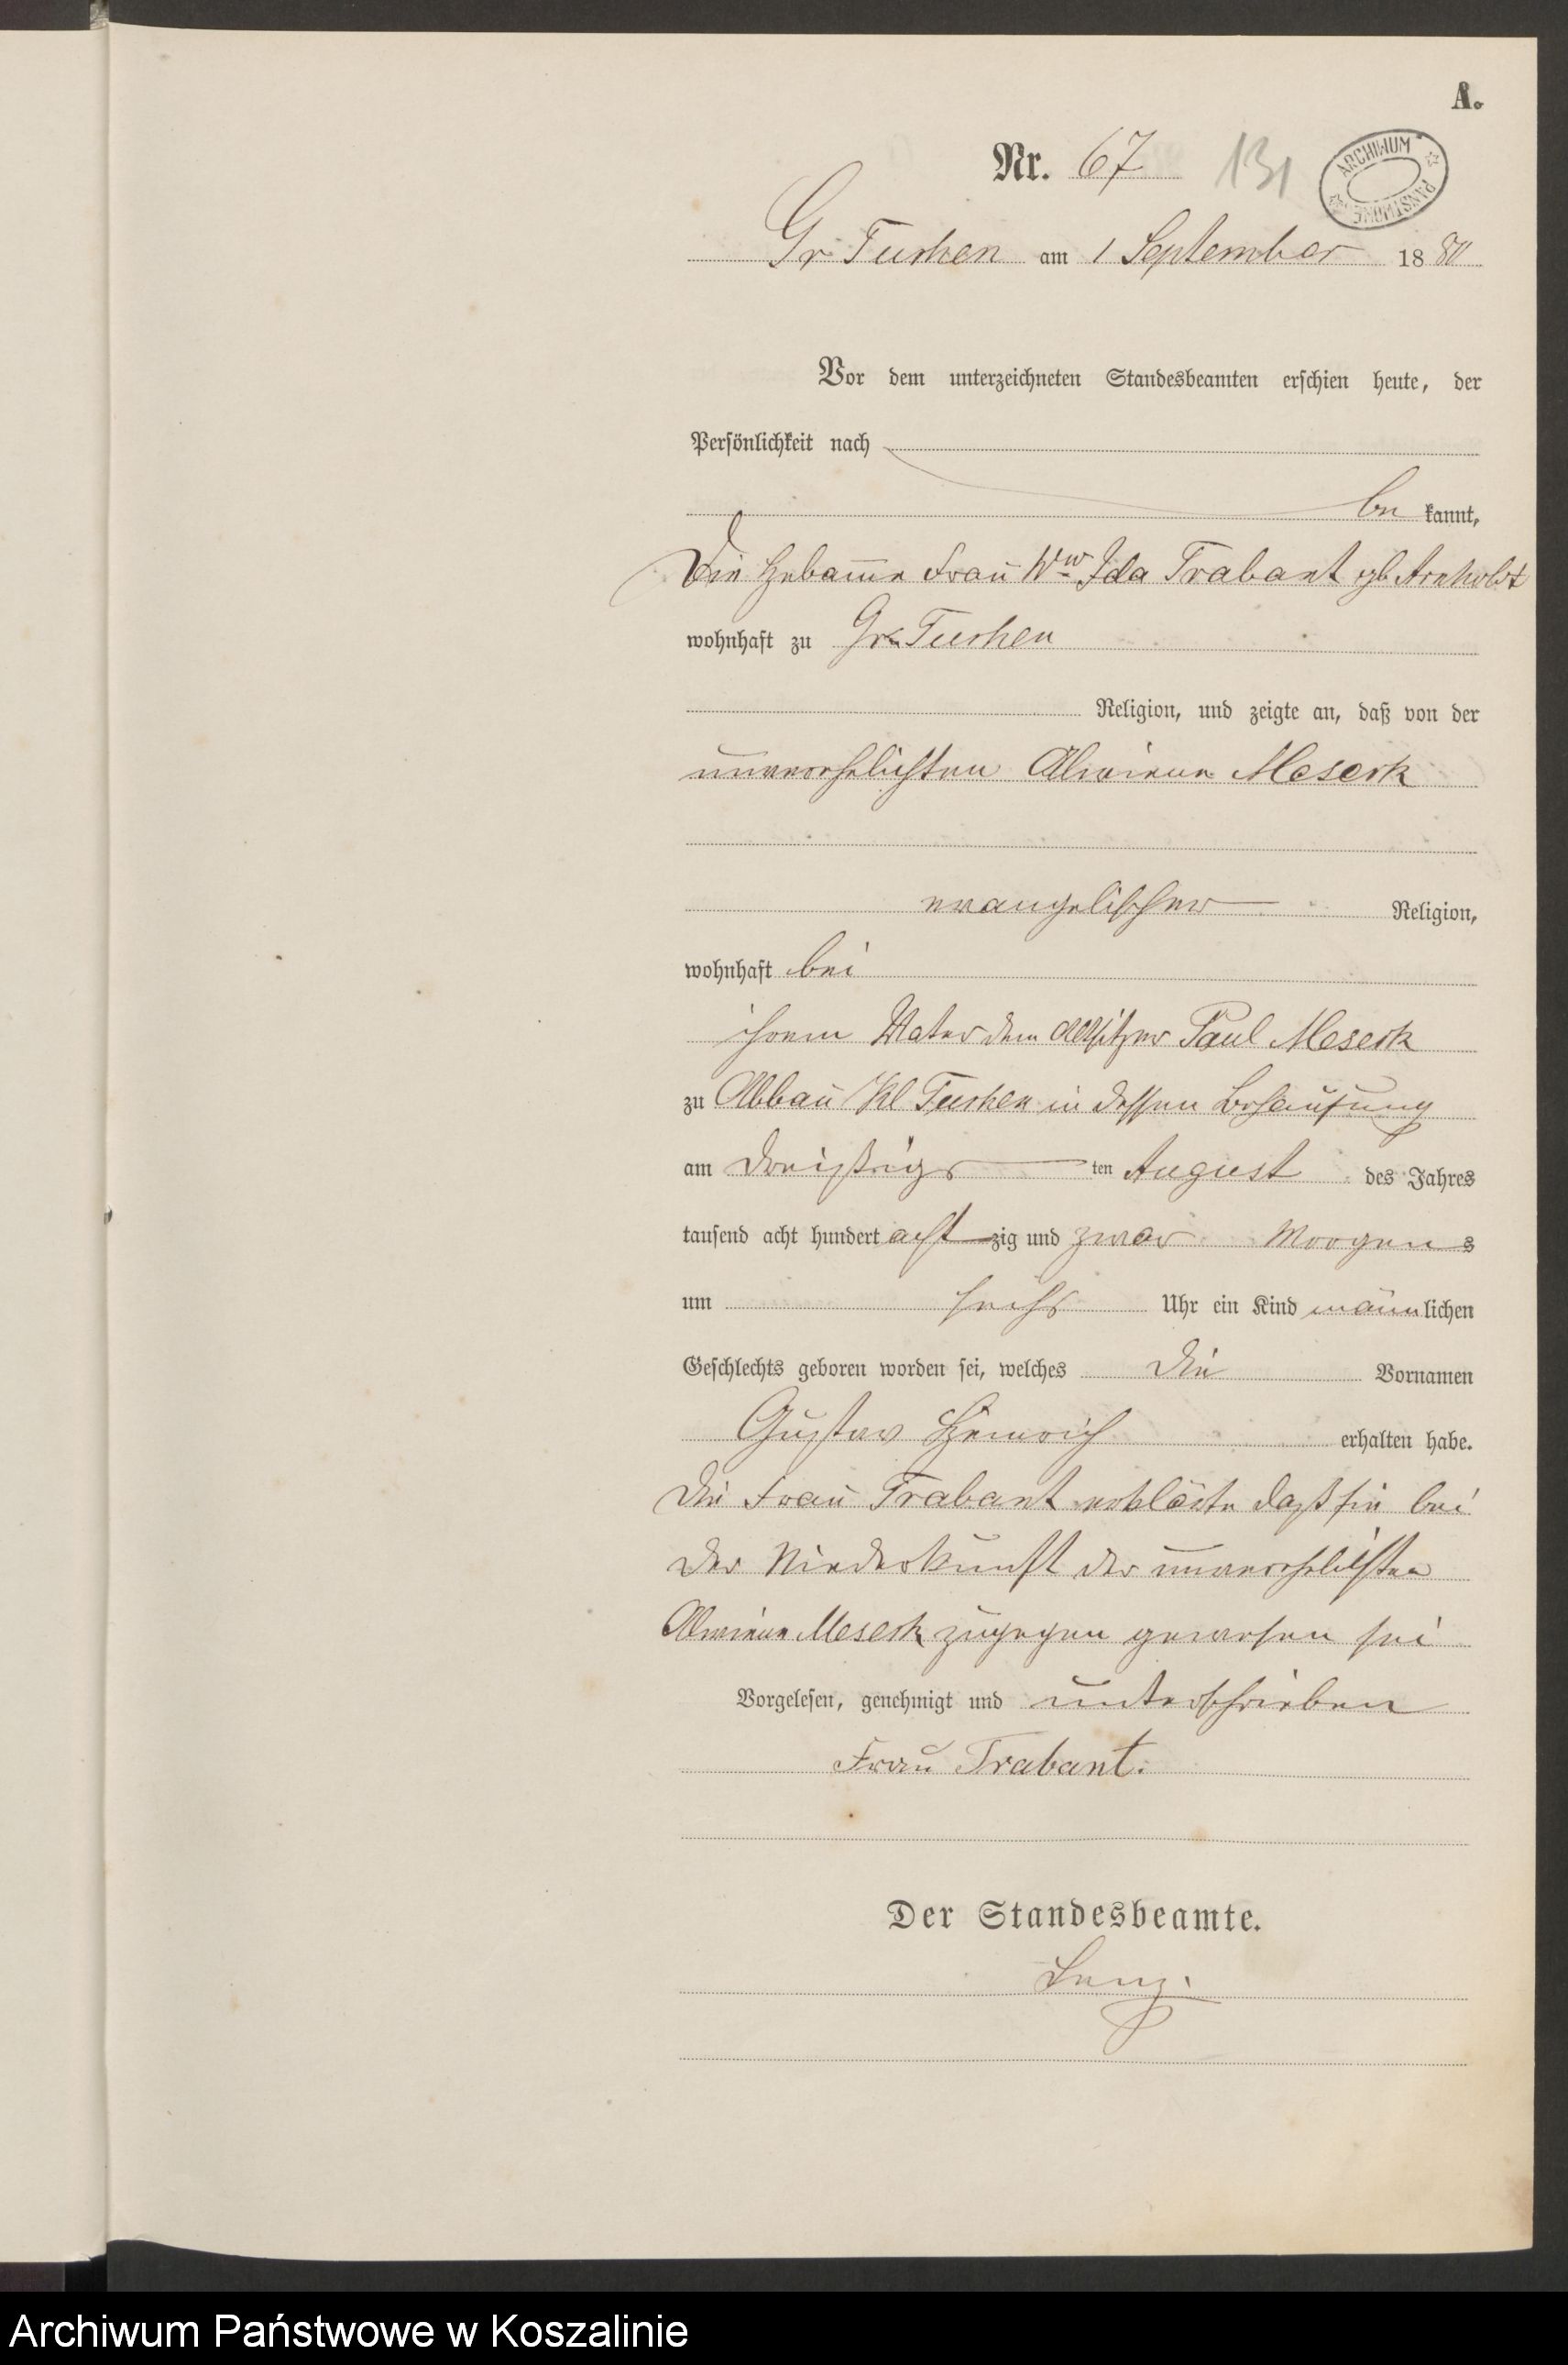 A.
Nr. 67 131
ARCHIWUM PAŃSTWOWE
Gr Tuchen am 1 September 1880
Vor dem unterzeichneten Standesbeamten erschien heute, der
Persönlichkeit nach
be kannt,
Die Hebamme Frau Ww Ida Trabant gb Arnholdt
wohnhaft zu Gr Tuchen
Religion, und zeigte an, daß von der
unverehelichten Alwiene Meserk
evangelischer Religion,
wohnhaft bei
ihrem Vater dem Paul Meserk
zu Abbau Kl Tuchen in dessen Behausung
am dreißigs ten August des Jahres
tausend acht hundert acht zig und zwar Morgens
um sechs Uhr ein Kind männlichen
Geschlechts geboren worden sei, welches die Vornamen
Gustav Heinrich erhalten habe.
Die Frau Trabant erklärte daß sie bei
der Niederkunft der unverehelichten
Alwiene Meserk zugegen gewesen sei
Vorgelesen, genehmigt und unterschrieben
Frau Trabant.
Der Standesbeamte.
Lenz.
Archiwum Państwowe w Koszalinie